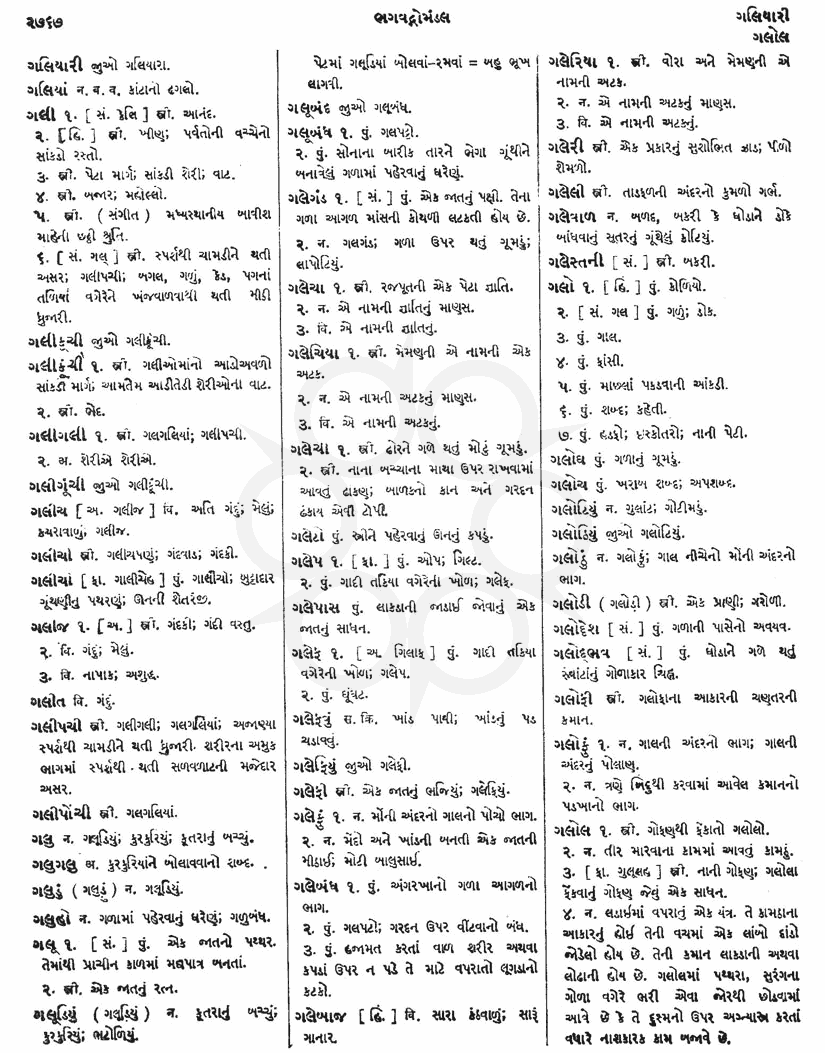 ૨૭૬૭
ભગવદ્ગોમંડલ
ગલિયારી
ગલોલ
ગલિયારી જુઓ ગલિયારા.
ગલિયાં ન. બ. વ. કાંટાનો ઢગલો.
ગલી ૧. [ સં. કેલિ ] સ્ત્રી. આનંદ.
૨. [ હિ. ] સ્ત્રી. ખીણ; પર્વતોની વચ્ચેનો
સાંકડો રસ્તો.
૩. સ્ત્રી. પેટા માર્ગ; સાંકડી શેરી; વાટ.
૪. સ્ત્રી. બજાર; મહોલ્લો.
૫. સ્ત્રી. ( સંગીત ) મધ્યસ્થાનીય બાવીશ
માંહેની છઠ્ઠી શ્રુતિ.
૬. [ સં. ગલ્ ] સ્ત્રી. સ્પર્શથી ચામડીને થતી
અસર; ગલીપચી; બગલ, ગળું, કેડ, પગનાં
તળિયાં વગેરેને ખંજવાળવાથી થતી મીઠી
ધ્રુજારી.
ગલીકૂચી જુઓ ગલીકૂંચી.
ગલીકૂંચી ૧. સ્ત્રી. ગલીઓમાંનો આડોઅવળો
સાંકડો માર્ગ; આમતેમ આડીતેડી શેરીઓના વાટ.
૨. સ્ત્રી. ભેદ.
ગલીગલી ૧. સ્ત્રી. ગલગલિયાં; ગલીપચી.
૨. અ. શેરીએ શેરીએ.
ગલીગૂંચી જુઓ ગલીકૂંચી.
ગલીચ [ અ. ગલીજ ] વિ. અતિ ગંદું; મેલું;
કચરાવાળું; ગલીજ.
ગલીચી સ્ત્રી. ગલીચપણું; ગંદવાડ; ગંદકી.
ગલીચો [ ફા. ગાલીચેહ ] પું. ગાલીચો; બુટ્ટાદાર
ગૂંથણીનું પથરણું; ઊનની શેતરંજી.
ગલીજ ૧. [ અ. ] સ્ત્રી. ગંદકી; ગંદી વસ્તુ.
૨. વિ. ગંદું; મેલું.
૩. વિ. નાપાક; અશુદ્ધ.
ગલીત વિ. ગંદું.
ગલીપચી સ્ત્રી. ગલીગલી; ગલગલિયાં; અજાણ્યા
સ્પર્શથી ચામડીને થતી ધ્રુજારી. શરીરના અમુક
ભાગમાં સ્પર્શથી થતી સળવળાટની મજેદાર
અસર.
ગલીપોંચી સ્ત્રી. ગલગલિયાં.
ગલુ ન. ગલૂડિયું; કુરકુરિયું; કૂતરાનું બચ્ચું.
ગલુગલુ અ. કુરકુરિયાંને બોલાવવાનો શબ્દ.
ગલુડું ( ગલુડું ) ન. ગલૂડિયું.
ગલુહો ન. ગળામાં પહેરવાનું ઘરેણું; ગળુબંધ.
ગલૂ ૧. [ સં. ] પું. એક જાતનો પથ્થર.
તેમાંથી પ્રાચીન કાળમાં મદ્યપાત્ર બનતાં.
૨. સ્ત્રી. એક જાતનું રત્ન.
ગલૂડિયું ( ગલૂડિયું ) ન. કૂતરાનું બચ્ચું;
કુરકુરિયું; ભટોળિયું.
પેટમાં ગલૂડિયાં બોલવાં-રમવાં = બહુ ભૂખ
લાગવી.
ગલૂબંદ જુઓ ગલૂબંધ.
ગલૂબંધ ૧. પું. ગલપટ્ટો.
૨. પું. સોનાના બારીક તારને ભેગા ગૂંથીને
બનાવેલું ગળામાં પહેરવાનું ઘરેણું.
ગલેગંડ ૧. [ સં. ] પું. એક જાતનું પક્ષી. તેના
ગળા આગળ માંસની કોથળી લટકતી હોય છે.
૨. ન. ગલગંડ; ગળા ઉપર થતું ગૂમડું;
લાપોટિયું.
ગલેચા ૧. સ્ત્રી. રજપૂતની એક પેટા જ્ઞાતિ.
૨. ન. એ નામની જ્ઞાતિનું માણસ.
૩. વિ. એ નામની જ્ઞાતિનું.
ગલેચિયા ૧. સ્ત્રી. મેમણની એ નામની એક
અટક.
૨. ન. એ નામની અટકનું માણસ.
૩. વિ. એ નામની અટકનું.
ગલેચી ૧. સ્ત્રી. ઢોરને ગળે થતું મોટું ગૂમડું.
૨. સ્ત્રી. નાના બચ્ચાના માથા ઉપર રાખવામાં
આવતું ઢાંકણ; બાળકનો કાન અને ગરદન
ઢંકાય એવી ટોપી.
ગલેટો પું. સ્ત્રીને પહેરવાનું ઊનનું કપડું.
ગલેપ ૧. [ ફા. ] પું. ઓપ; ગિલ્ટ.
૨. પું. ગાદી તકિયા વગેરેની ખોળ; ગલેફ.
ગલેપાસ પું. લાકડાની જાડાઈ જોવાનું એક
જાતનું સાધન.
ગલેફ ૧. [ અ. ગિલાફ ] પું. ગાદી તકિયા
વગેરેની ખોળ; ગલેપ.
૨. પું. ઘૂંઘટ.
ગલેફવું સ. ક્રિ. ખાંડ પાવી; ખાંડનું પડ
ચડાવવું.
ગલેફિયું જુઓ ગલેફી.
ગલેફી સ્ત્રી. એક જાતનું ભજિયું; ગલેફિયું.
ગલેફું ૧. ન. મોંની અંદરનો ગાલનો પોચો ભાગ.
૨. ન. મેંદો અને ખાંડની બનતી એક જાતની
મીઠાઈ; મોટી બાલુસાઈ.
ગલેબંધ ૧. પું. અંગરખાનો ગળા આગળનો
ભાગ.
૨. પું. ગલપટો; ગરદન ઉપર વીંટવાનો બંધ.
૩. પું. હજામત કરતાં વાળ શરીર અથવા
કપડાં ઉપર ન પડે તે માટે વપરાતો લૂગડાનો
કટકો.
ગલેબાજ [ હિં. ] વિ. સારા કંઠવાળું; સારૂં
ગાનાર.
ગલેરિયા ૧. સ્ત્રી. વોરા અને મેમણની એ
નામની અટક.
૨. ન. એ નામની અટકનું માણસ.
૩. વિ. એ નામની અટકનું.
ગલેરી સ્ત્રી. એક પ્રકારનું સુશોભિત ઝાડ; પીળો
શેમળો.
ગલેલી સ્ત્રી. તાડફળની અંદરનો કુમળો ગર્ભ.
ગલેવાળ ન. બળદ, બકરી કે ઘોડાને ડોકે
બાંધવાનું સૂતરનું ગૂંથેલું કોટિયું.
ગલેસ્તની [ સં. ] સ્ત્રી. બકરી.
ગલો ૧. [ હિં. ] પું. કોળિયો.
૨. [ સં. ગલ ] પું. ગળું; ડોક.
૩. પું. ગાલ.
૪. પું. ફાંસી.
૫. પું. માછલાં પકડવાની આંકડી.
૬. પું. શબ્દ; કહેતી.
૭. પું. હડફો; ઇસ્કોતરો; નાની પેટી.
ગલોઘ પું. ગળાનું ગૂમડું.
ગલોચ પું. ખરાબ શબ્દ; અપશબ્દ.
ગલોટિયું ન. ગુલાંટ; ગોટીમડું.
ગલોડિયું જુઓ ગલોટિયું.
ગલોડું ન. ગલોફું; ગાલ નીચેનો મોંની અંદરનો
ભાગ.
ગલોડી ( ગલોડી ) સ્ત્રી. એક પ્રાણી; ગરોળી.
ગલોદ્દેશ [ સં. ] પું. ગળાની પાસેનો અવયવ.
ગલોદ્ભવ [ સં. ] પું. ઘોડાને ગળે થતું
રૂંવાટાંનું ગોળાકાર ચિહ્ન.
ગલોફી સ્ત્રી. ગલોફાના આકારની ચણતરની
કમાન.
ગલોફું ૧. ન. ગાલની અંદરનો ભાગ; ગાલની
અંદરનું પોલાણ.
૨. ન. ત્રણે બિંદુથી કરવામાં આવેલ કમાનનો
પડખાનો ભાગ.
ગલોલ ૧. સ્ત્રી. ગોફણથી ફેંકાતો ગલોલો.
૨. ન. તીર મારવાના કામમાં આવતું કામઠું.
૩. [ ફા. ગુલૂલહ ] સ્ત્રી. નાની ગોફણ; ગલોલા
ફેંકવાનું ગોફણ જેવું એક સાધન.
૪. ન. લડાઈમાં વપરાતું એક યંત્ર. તે કામઠાના
આકારનું હોઈ તેની વચમાં એક લાંબો દાંડો
જોડેલો હોય છે. તેની કમાન લાકડાની અથવા
લોઢાની હોય છે. ગલોલમાં પથ્થરા, સુરંગના
ગોળા વગેરે ભરી એવા જોરથી છોડવામાં
આવે છે કે તે દુશ્મનો ઉપર અગ્ન્યાસ્ત્ર કરતાં
વધારે નાશકારક કામ બજાવે છે.